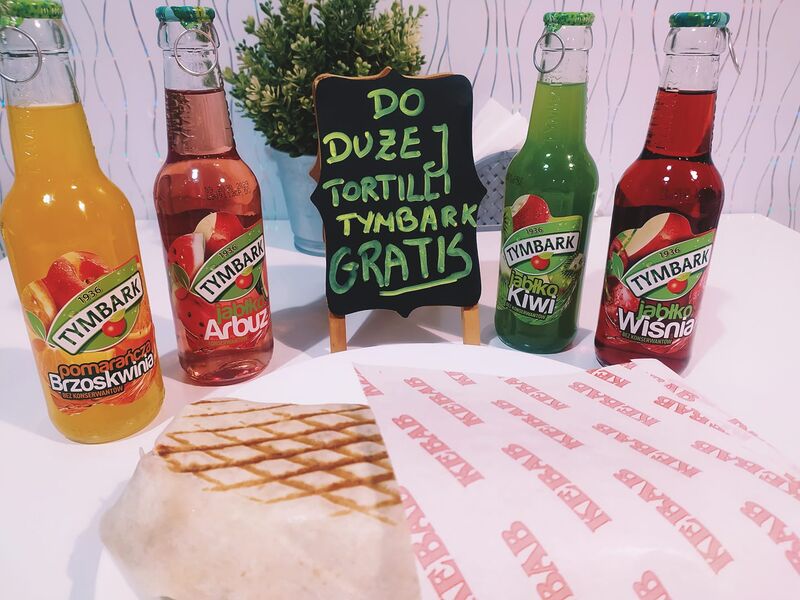 DO
DUŻEJ
TORTILLI
TYMBARK
GRATIS
1936
TYMBARK
pomarańcza
Brzoskwinia
BEZ KONSERWANTÓW
1936
TYMBARK
jabłko
Arbuz
BEZ KONSERWANTÓW
1936
TYMBARK
jabłko
Kiwi
BEZ KONSERWANTÓW
1936
TYMBARK
jabłko
Wiśnia
BEZ KONSERWANTÓW
KEBAB KEBAB KEBAB
KEBAB KEBAB KEBAB
KEBAB KEBAB KEBAB